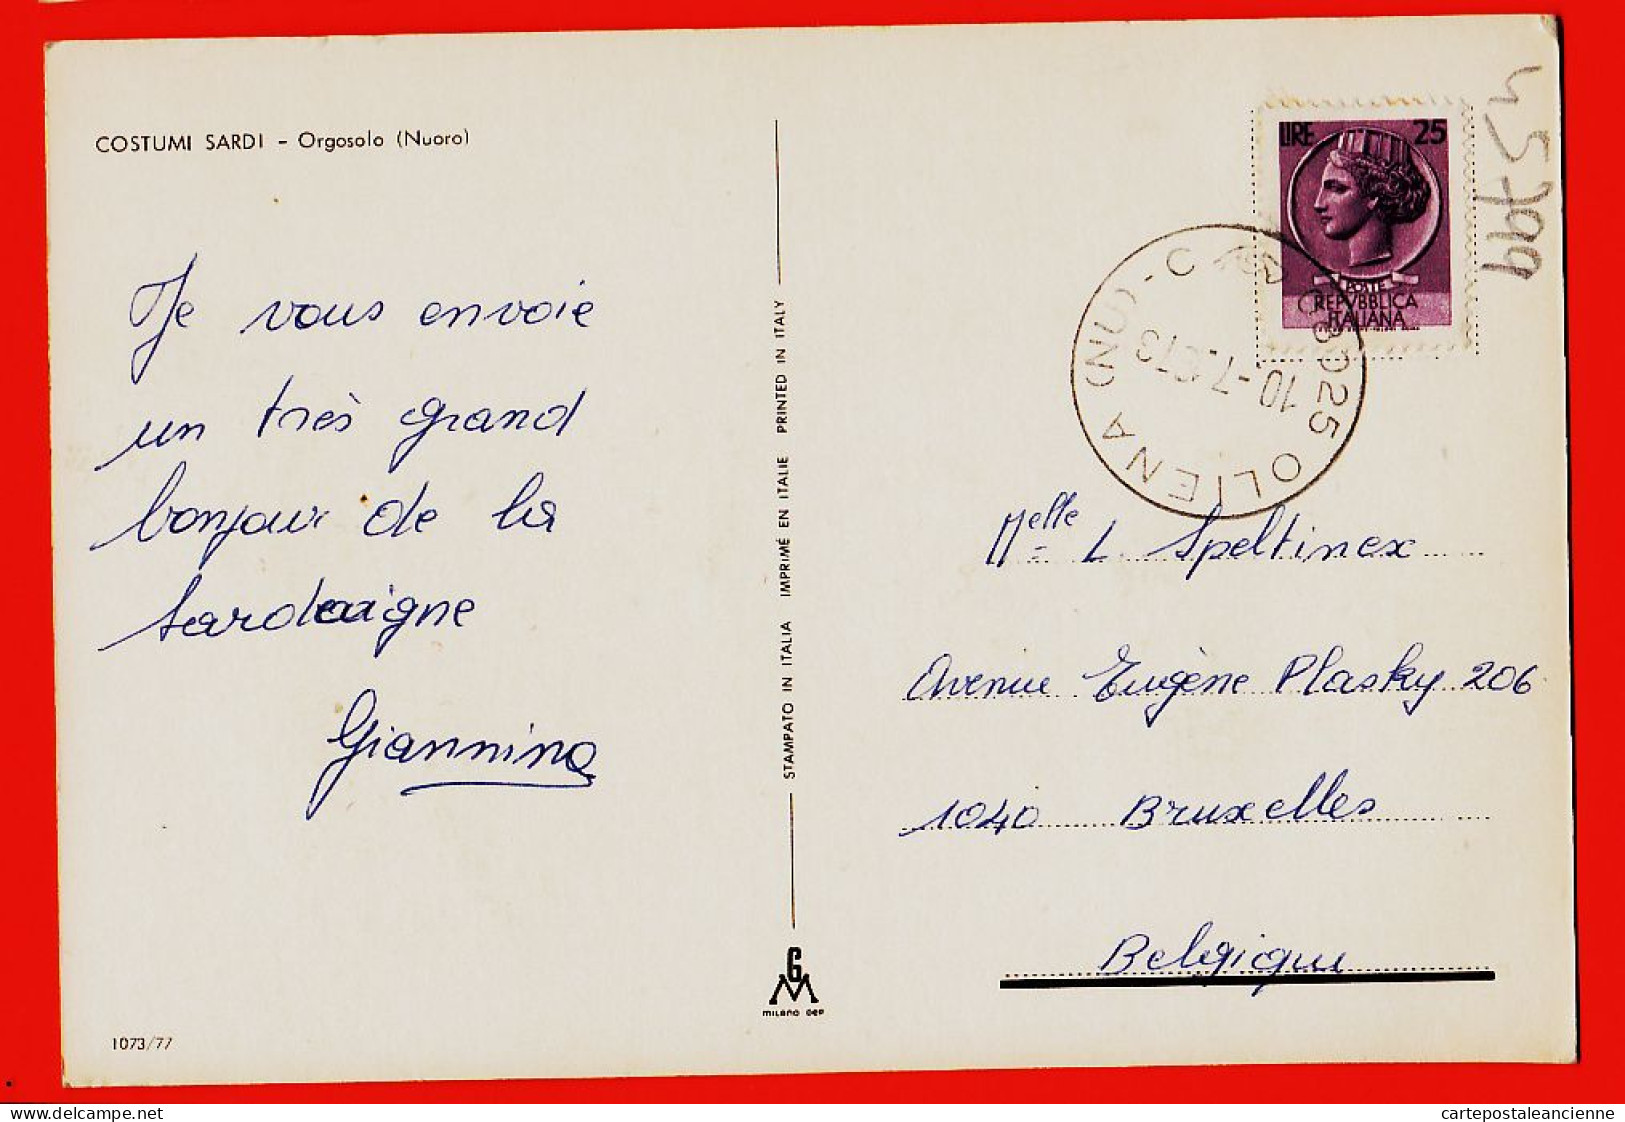 COSTUMI SARDI - Orgosolo (Nuoro)
Je vous envoie
un très grand
bonjour de la
Sardaigne
Giannina
1073/77
STAMPATO IN ITALIA IMPRIMÉ EN ITALIE PRINTED IN ITALY
GM
MILANO DEP
LIRE 25
POSTE
REPVBBLICA
ITALIANA
08025 OLIENA (NU) - C
10-7-73
45799
Melle L Speltinex
Avenue Eugène Plasky 206
1040 Bruxelles
Belgique
cartepostaleancienne
www.delcampe.net